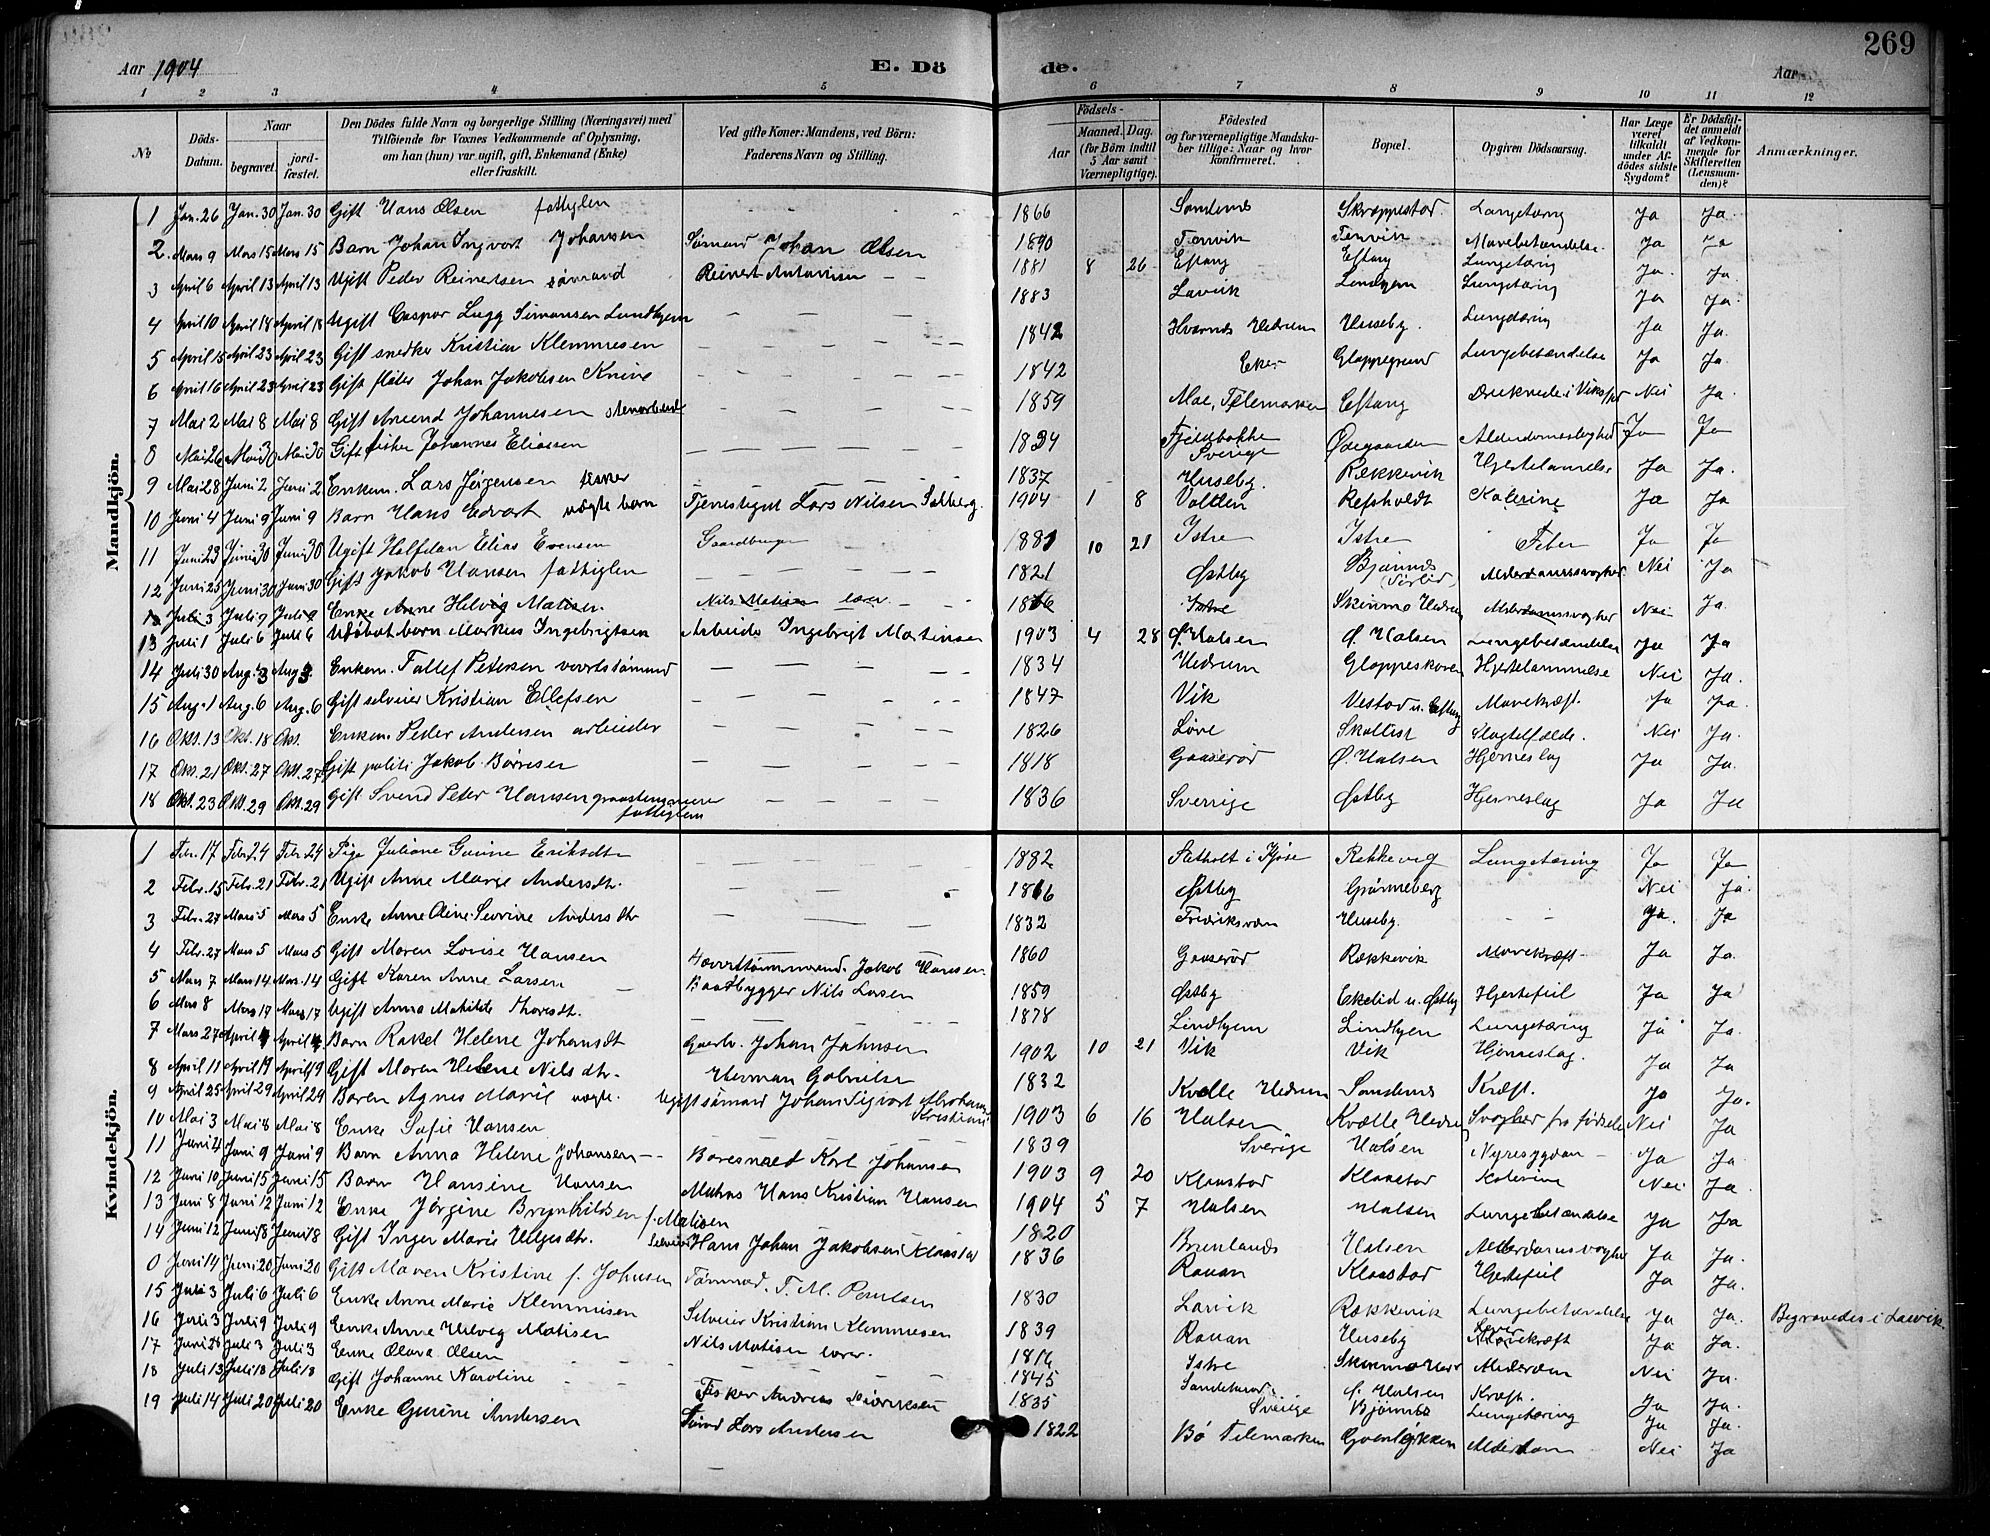 Aar 1904 E. Döde. Aar 269
1 2 3 4 5 6 7 8 9 10 11 12
№ Döds-Datum. Naar begravet. jordfæstet. Den Dödes fulde Navn og borgerlige Stilling (Næringsvei) med Tilföiende for Voxnes Vedkommende af Oplysning, om han (hun) var ugift, gift, Enkemand (Enke) eller fraskilt. Ved gifte Koner: Mandens, ved Börn: Faderens Navn og Stilling. Födsels- Aar Maaned. Dag. (for Börn indtil 5 Aar samt Værnepligtige). Födested og for værnepligtige Mandskaber tillige: Naar og hvor konfirmeret. Bopæl. Opgiven Dödsaarsag. Har Læge været tilkaldt under Afdödes sidste Sygdom? Er Dödsfaldet anmeldt af Vedkommende for Skifteretten (Lensmanden)? Anmærkninger.
Mandkjön.
1 Jan. 26 Jan. 30 Jan. 30 Gift Hans Olsen fattiglem 1866 Sandenes Skreppestad Lungetæring Ja Ja
2 Mars 9 Mars 15 Mars 15 Barn Johan Ingvart Johansen Sømand Johan Olsen 1890 Tenvik Tenvik Mavebetændelse Ja Ja
3 April 6 April 13 April 13 Ugift Peder Reinertsen sømand Reinert Antonisen 1881 8 26 Eftang Eftang Lungetæring Ja Ja
4 April 10 April 18 April 18 Ugift Caspar Lugg Simonsen Lindhjem 1883 Larvik Lindhjem Lungetæring Ja Ja
5 April 15 April 23 April 23 Gift snedker Kristian Klemmesen 1842 Hvarnes Hedrum Huseby Lungetæring Ja Ja
6 April 16 April 23 April 23 Gift fløter Johan Jakobsen Knive 1842 Eker Gloppegrund Lungebetændelse Ja Ja
7 Mai 2 Mai 8 Mai 8 Gift Anund Johannesen stenarbeid 1859 Mae, Telemarken Eftang Druknede i Viksfjor Nei Ja
8 Mai 26 Mai 30 Mai 30 Gift fisker Johannes Eliassen 1824 Fjeldbakke Sverige Ødegaarden Alderdomssvaghed Ja Ja
9 Mai 28 Juni 2 Juni 2 Enkem. Lars Jørgensen fisker 1837 Huseby Rækkevik Hjertelammelse Ja Ja
10 Juni 4 Juni 9 Juni 9 Barn Hans Edvart uægte barn Tjenestegut Lars Nilsen Solberg 1904 1 8 Valden Refsholdt Kolerine Ja Ja
11 Juni 23 Juni 30 Juni 30 Ugift Halfdan Elias Evensen Gaardbruger 1881 10 21 Istre Istre Feber Ja Ja
12 Juni 25 Juni 30 Juni 30 Gift Jakob Hansen fattiglem 1821 Østby Bjønnes Alderdomssvaghed Nei Ja
Juli 3 Juli 9 Juli 9 Enke Anne Helvig Matisen Nils Matisen lærer 1816 Istre Skinmo Hedrum Alderdomssvaghed Nei Ja
13 Juli 1 Juli 6 Juli 6 Udøbt barn Markus Ingebrigtsen Arbeider Ingebrigt Martinsen 1903 4 28 Ø. Halsen Ø. Halsen Lungebetændelse Ja Ja
14 Juli 30 Aug. 3 Aug. 3 Enkem. Tallef Petersen værftstømmd 1834 Hedrum Gloppeskoven Hjertelammelse Nei Ja
15 Aug. 1 Aug. 6 Aug. 6 Gift selveier Kristian Ellefsen 1847 Vik Vestad u. Eftang Mavekræft Ja Ja
16 Okt. 13 Okt. 18 Okt. Enkem. Peder Andersen arbeider 1826 Løve Skallist Slagtilfælde Nei Ja
17 Okt. 21 Okt. 27 Okt. 27 Gift politi Jakob Børresen 1818 Gaaserød Ø. Halsen Hjerneslag Ja Ja
18 Okt. 23 Okt. 29 Okt. 29 Gift Svend Peter Hansen graastensmurer fattiglem 1836 Sverige Østby Hjerneslag Ja Ja
Kvindekjön.
1 Febr. 17 Febr. 24 Febr. 24 Pige Juliane Gurine Eriksdtr 1882 Sætholt i Kjose Rekkevig Lungetæring Ja Ja
2 Febr. 15 Febr. 21 Febr. 21 Ugift Anne Marie Andersdtr. 1816 Østby Grønneberg Nei Ja
3 Febr. 27 Mars 5 Mars 5 Enke Anne Oline Severine Andersdtr 1832 Fredriksværn Huseby Ja Ja
4 Febr. 27 Mars 5 Mars 5 Gift Maren Lovise Hansen Værftstømmermd. Jakob Hansen 1860 Gaaserød Rækkevik Mavekræft Ja Ja
5 Mars 7 Mars 14 Mars 14 Gift Karen Anne Larsen Baadbygger Nils Larsen 1859 Østby Ekelid u. Østby Hjertefeil Ja Ja
6 Mars 8 Mars 17 Mars 17 Ugift Anna Mathilde Thorsdtr. 1878 Lindhjem Lindhjem Lungetæring Ja Ja
7 Mars 27 April 4 April 4 Barn Rakel Helene Johansdt Gaardbr. Johan Johnsen 1902 10 21 Vik Vik Hjerneslag Ja Ja
8 April 11 April 19 April 19 Gift Maren Helene Nilsdtr. Herman Gabrielsen 1832 Kvelle Hedrum Sandenes Kræft Ja Ja
9 April 25 April 29 April 29 Baren Agnes Marie uægte Ugift sømand Johan Sigvart Abraham Kristians 1903 6 16 Halsen Kvelle Hedrum Svaghed fra fødselen Nei Ja
10 Mai 3 Mai 8 Mai 8 Enke Sofie Hansen 1839 Sverige Halsen Nyresygdom Ja Ja
11 Juni 4 Juni 9 Juni 9 Barn Anna Helene Johansen Baresmed Karl Johansen 1903 9 20 Klaastad Klaastad Kolerine Nei Ja
12 Juni 10 Juni 15 Juni 15 Barn Hansine Hansen Matros Hans Kristian Hansen 1904 5 7 Halsen Halsen Lungebetændelse Ja Ja
13 Juni 8 Juni 12 Juni 12 Enke Jørgine Brynhildsen f. Matisen 1820 Brunlanes Halsen Alderdomssvaghed Ja Ja
14 Juni 12 Juni 18 Juni 18 Gift Inger Marie Helgesdtr. Selveier Hans Johan Jakobsen Klaastad 1836 Rauan Klaastad Hjertefeil Ja Ja
0 Juni 14 Juni 20 Juni 20 Gift Maren Kristine f. Johnsen Tømmd. T. M. Paulsen 1830 Larvik Rækkevik Lungebetændelse Ja Ja Begravedes i Larvik
15 Juli 3 Juli 6 Juli 6 Enke Anne Marie Klemmesen Selveier Kristian Klemmesen 1839 Rauan Huseby Leverkræft Ja Ja
16 Juli 3 Juli 9 Juli 9 Enke Anne Helvig Matisen Nils Matisen lærer. 1816 Istre Skinmo Hedr Alderdom Nei Ja
17 Juni 28 Juli 3 Juli 3 Enke Olava Olsen 1845 Sandeherad Ø. Halsen Kræft Ja Ja
18 Juli 13 Juli 18 Juli 18 Gift Johanne Karoline Fisker Andreas Hendriksen 1835 Sverige Bjønnes Lungetæring Ja Ja
19 Juli 14 Juli 20 Juli 20 Enke Gurine Andersen Lars Andersen 1822 Bø Telemarken Alderdom Nei Ja